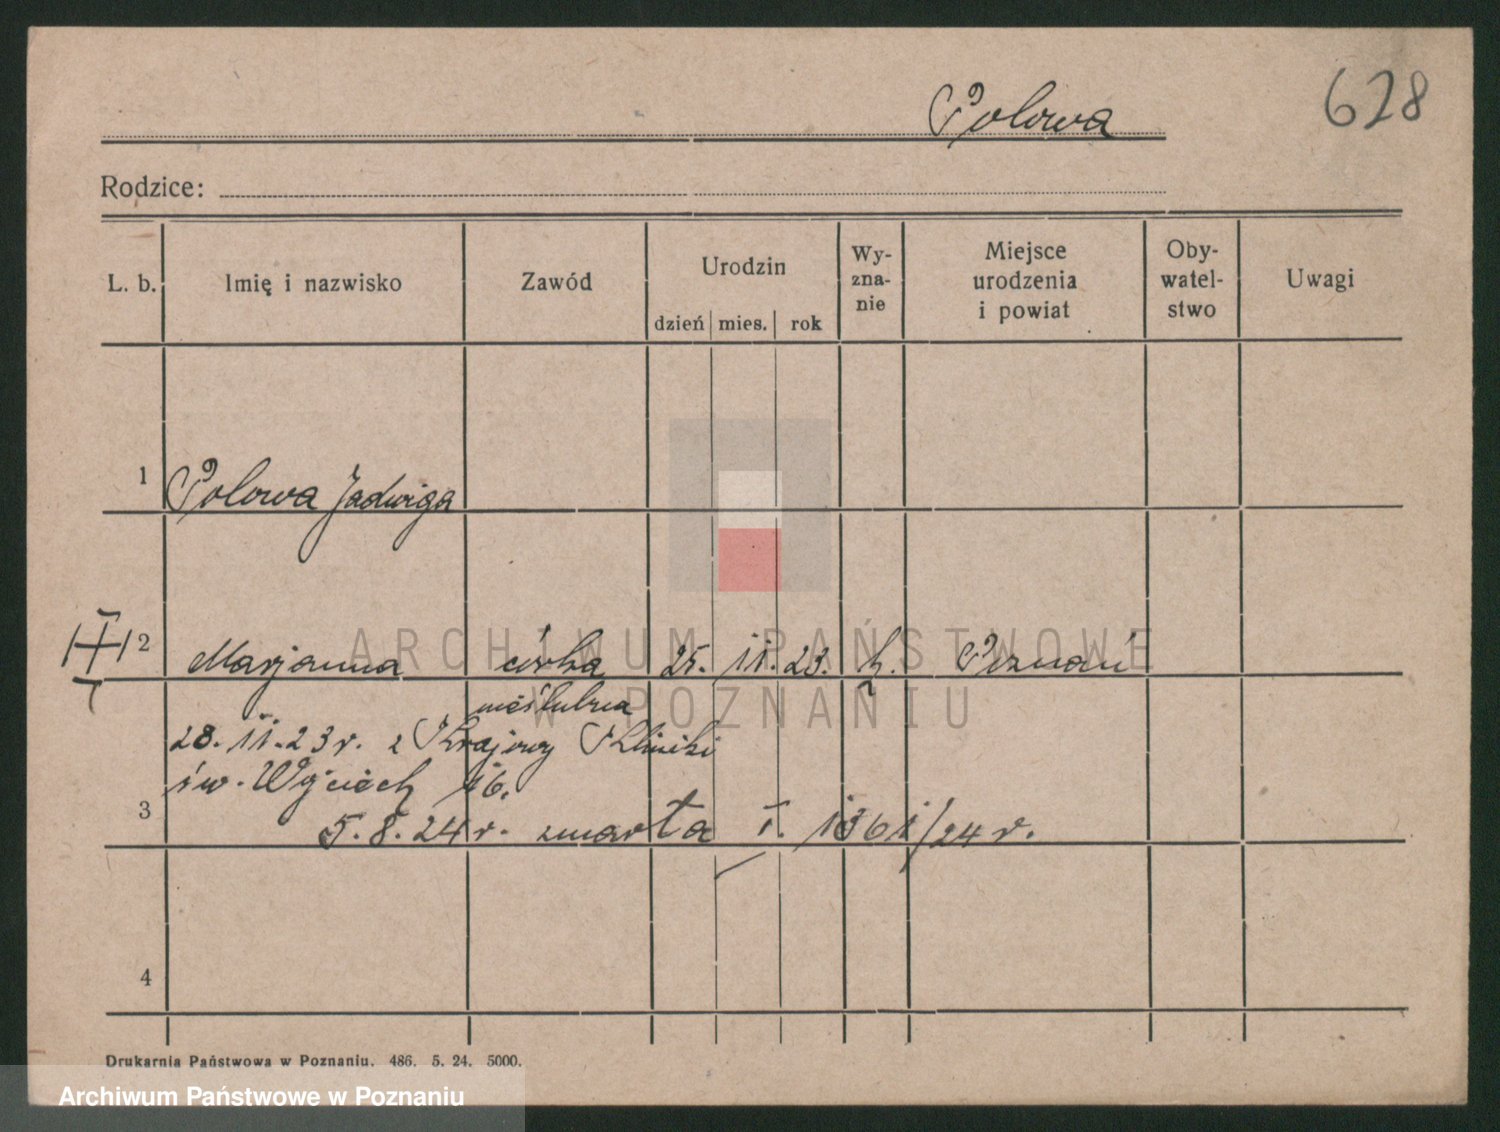 Polowa
628
Rodzice:
L. b. Imię i nazwisko Zawód Urodzin dzień mies. rok Wy-zna-nie Miejsce urodzenia i powiat Oby-watel-stwo Uwagi
1 Polowa Jadwiga
2 Marjanna córka 25. 11. 23. k. Poznań
nieślubna
28. 11. 23 r. z Krajowy Kliniki
św. Wojciech 16.
3 5. 8. 24 r. zmarta T. 1361/24 r.
4
Drukarnia Państwowa w Poznaniu. 486. 5. 24. 5000.
ARCHIWUM PAŃSTWOWE
W POZNANIU
Archiwum Państwowe w Poznaniu